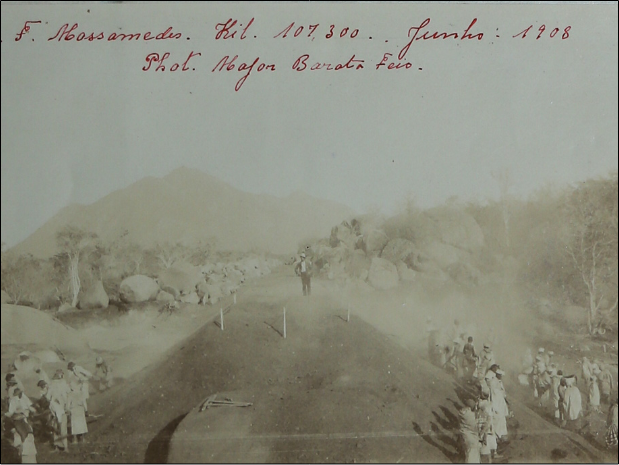 C. F. Mossamedes. Kil. 107,300. Junho: 1908
Phot. Major Barata Feio.